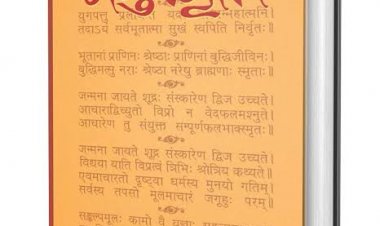 युगपत्तु प्रलीयन्ते यदा तस्मिन्महात्मनि।
तदाऽयं सर्वभूतात्मा सुखं स्वपिति निर्वृतः॥
भूतानां प्राणिनः श्रेष्ठाः प्राणिनां बुद्धिजीविनः।
बुद्धिमत्सु नराः श्रेष्ठा नरेषु ब्राह्मणाः स्मृताः॥
जन्मना जायते शूद्रः संस्कारेण द्विज उच्यते।
आचाराद्विच्युतो विप्रो न वेदफलमश्नुते।
आचारेण तु संयुक्त सम्पूर्णफलभाक्स्मृतः॥
जन्मना जायते शूद्रः संस्कारेण द्विज उच्यते।
विद्यया याति विप्रत्वं त्रिभिः श्रोत्रिय कथ्यते॥
एवमाचारतो दृष्ट्वा धर्मस्य मुनयो गतिम्।
सर्वस्य तपसो मूलमाचारं जगृहुः परम्॥
सङ्कल्पमूलः कामो वै